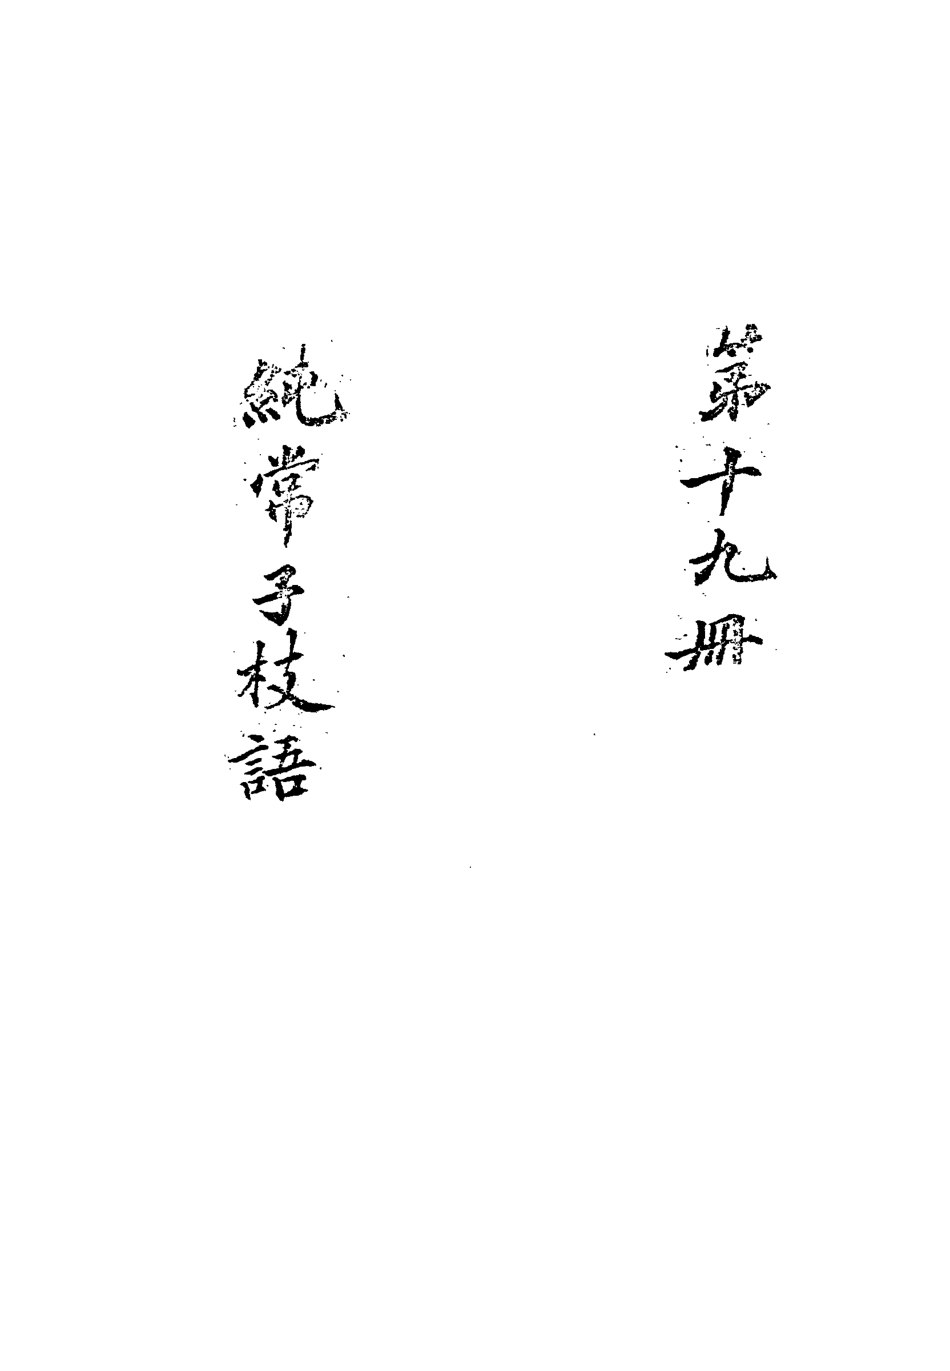 第十九冊
純常子枝語